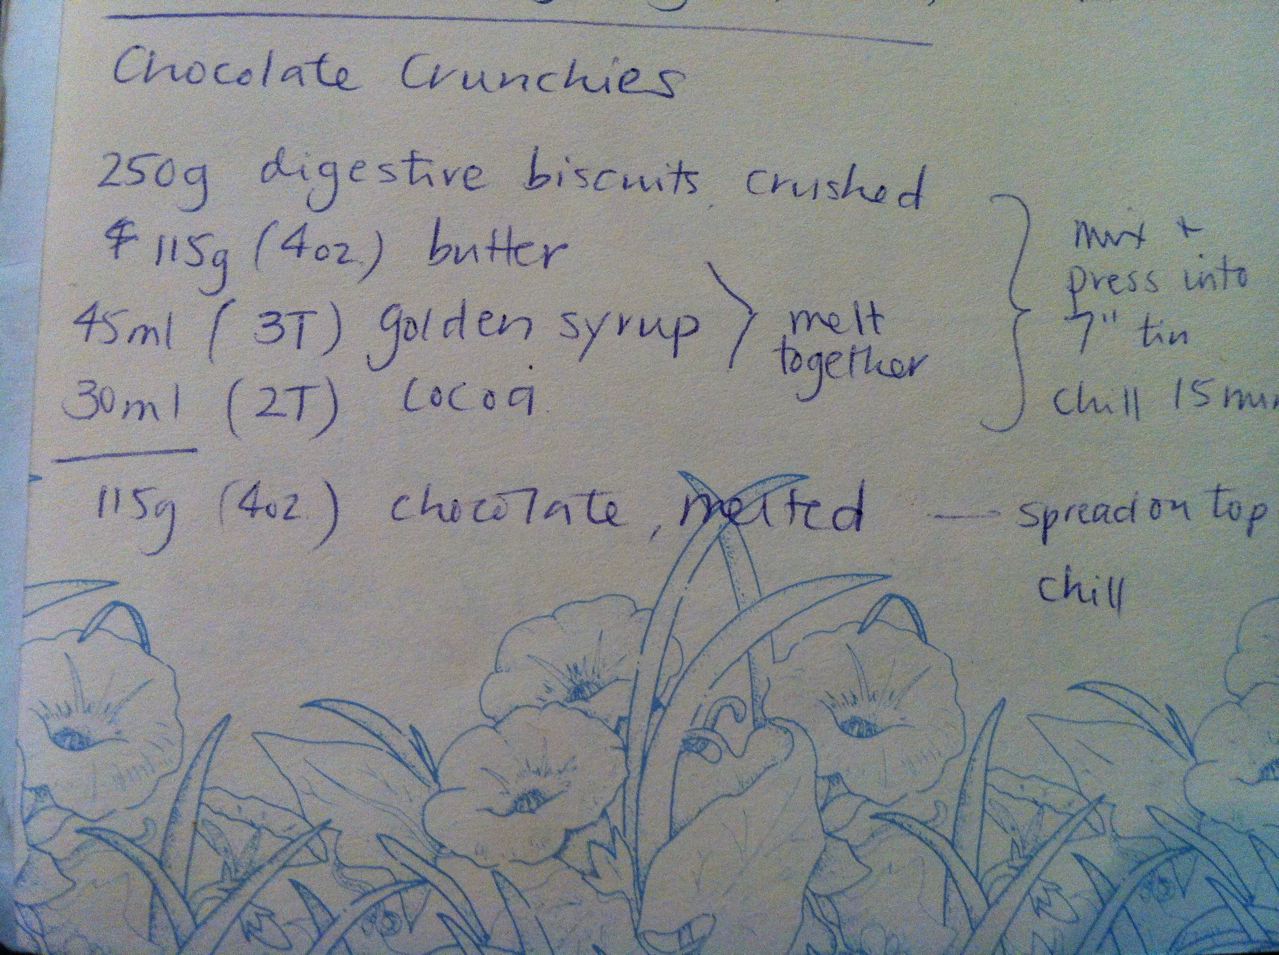 Chocolate Crunchies
250g digestive biscuits, crushed
115g (4oz.) butter
45ml (3T) golden syrup
melt
together
30ml (2T) cocoa
mix +
press into
7" tin
chill 15 min
115g (4oz.) chocolate, melted — spread on top
chill